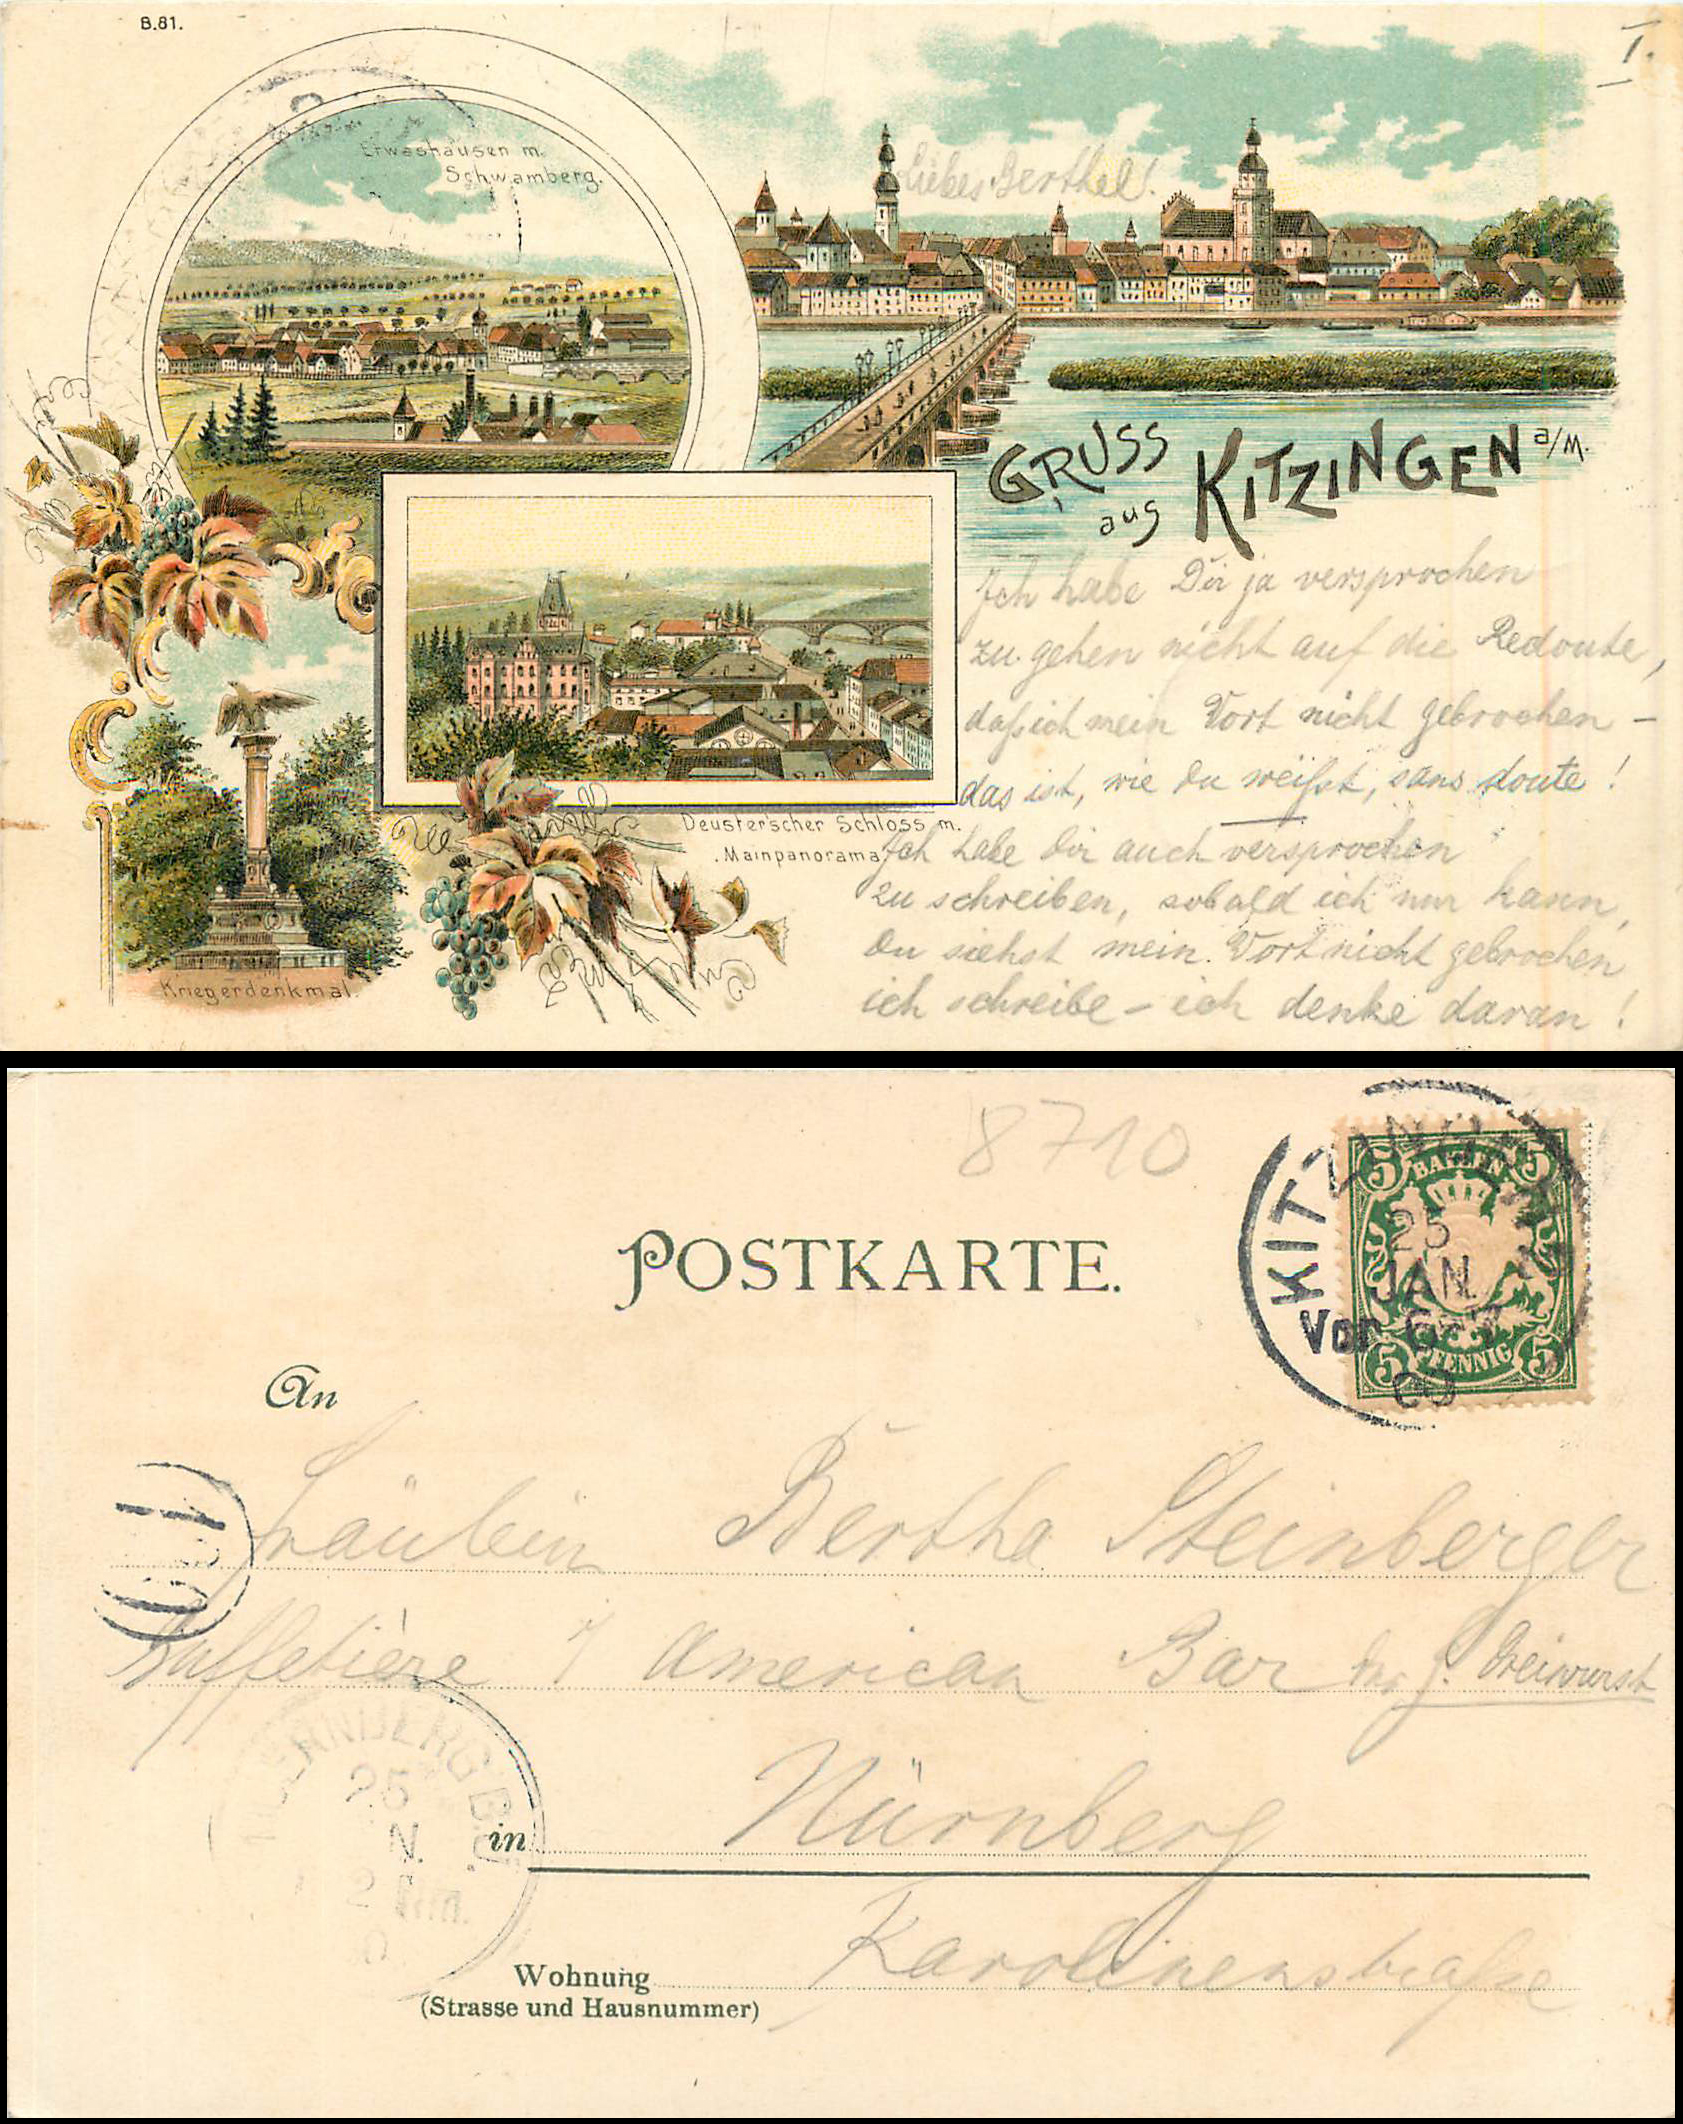 B.81.
I.
Etwashausen m.
Schwamberg.
Liebes Berthel!
GRUSS
aus KITZINGEN a/M.
Ich habe Dir ja versprochen
zu gehen nicht auf die Redoute,
daß ich mein Wort nicht gebrochen –
das ist, wie Du weißt, sans doute!
Deuster'scher Schloss m.
Mainpanorama
Ich habe Dir auch versprochen
zu schreiben, sobald ich nur kann,
Du siehst mein Wort nicht gebrochen
ich schreibe – ich denke daran!
Kriegerdenkmal.
8710
POSTKARTE.
KITZINGEN
25
JAN
Vor 6-7
00
5 BAYERN 5
5 PFENNIG 5
An
Fräulein Bertha Steinberger
Buffetière American Bar J. Dreiwurst
NUERNBERG
25
N.
2
in Nürnberg
Wohnung Karolinenstraße
(Strasse und Hausnummer)